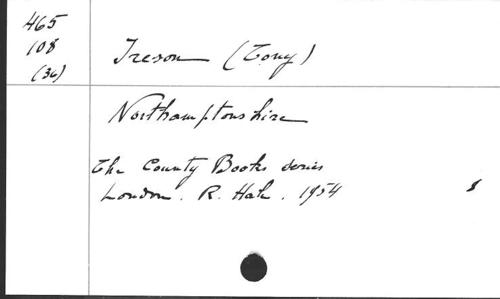 465
108
(36)
Ireson (Tony)
Northamptonshire
The County Books series
London. R. Hale. 1954
8